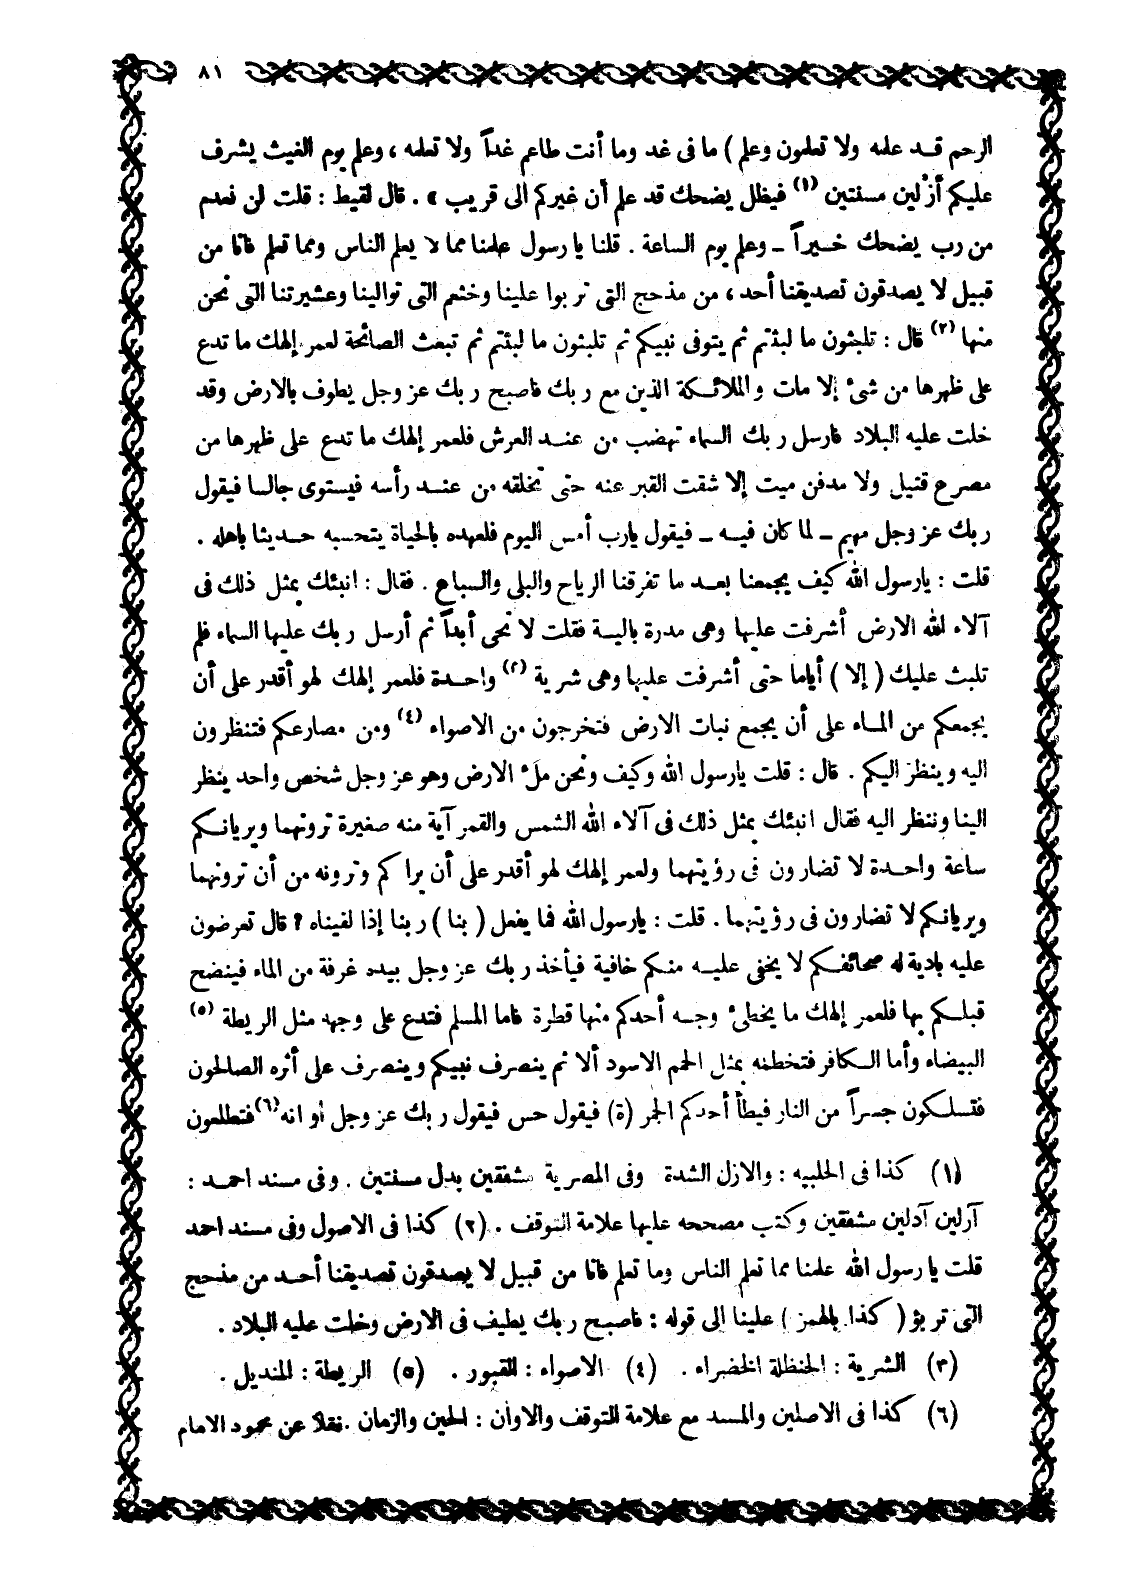 ٨١
الرحم قد علمه ولا تعلمون وعلم ) ما فى غد وما أنت طاعم غداً ولا تعلمه ، وعلم يوم الغيث يشرف
عليكم أزلين مسنتين (١) فيظل يضحك قد علم أن غيركم الى قريب » . قال لقيط : قلت لن نعدم
من رب يضحك خيراً ـ وعلم يوم الساعة . قلنا يا رسول علمنا مما لا يعلم الناس ومما تعلم فانا من
قبيل لا يصدقون تصديقنا أحد ، من مذحج التى تربوا علينا وخثعم التى توالينا وعشيرتنا التى نحن
منها (٢) قال : تلبثون ما لبثتم ثم يتوفى نبيكم ثم تلبثون ما لبثتم ثم تبعث الصائحة لعمر إلهك ما تدع
على ظهرها من شىء إلا مات والملائكة الذين مع ربك فاصبح ربك عز وجل يطوف بالارض وقد
خلت عليه البلاد فارسل ربك السماء تهضب من عند العرش فلعمر إلهك ما تدع على ظهرها من
مصرع قتيل ولا مدفن ميت إلا شقت القبر عنه حتى تخلقه من عند رأسه فيستوى جالسا فيقول
ربك عز وجل مهيم ـ لما كان فيه ـ فيقول يارب أمس اليوم فلعهده بالحياة يتحسبه حديثا باهله .
قلت : يارسول الله كيف يجمعنا بعد ما تفرقنا الرياح والبلى والسباع . فقال : انبئك بمثل ذلك فى
آلاء الله الارض أشرفت عليها وهى مدرة بالية فقلت لا تحى أبداً ثم أرسل ربك عليها السماء فلم
تلبث عليك ( إلا ) أياما حتى أشرفت عليها وهى شرية (٣) واحدة فلعمر إلهك لهو أقدر على أن
يجمعكم من الماء على أن يجمع نبات الارض فتخرجون من الاصواء (٤) ومن مصارعكم فتنظرون
اليه وينظر اليكم . قال : قلت يارسول الله وكيف ونحن ملء الارض وهو عز وجل شخص واحد ينظر
الينا وننظر اليه فقال انبئك بمثل ذلك فى آلاء الله الشمس والقمر آية منه صغيرة ترونهما ويريانكم
ساعة واحدة لا تضارون فى رؤيتهما ولعمر إلهك لهو أقدر على أن يراكم وترونه من أن ترونهما
ويريانكم لا تضارون فى رؤيتهما . قلت : يارسول الله فما يفعل ( بنا ) ربنا إذا لقيناه ؟ قال تعرضون
عليه بادية له صحائفكم لا يخفى عليه منكم خافية فيأخذ ربك عز وجل بيده غرفة من الماء فينضح
قبلكم بها فلعمر إلهك ما يخطىء وجه أحدكم منها قطرة فاما المسلم فتدع على وجهه مثل الريطة (٥)
البيضاء وأما الكافر فتخطمه بمثل الحمم الاسود ألا ثم ينصرف نبيكم وينصرف على أثره الصالحون
فتسلكون جسراً من النار فيطأ أحدكم الجمر (ة) فيقول حس فيقول ربك عز وجل أو انه (٦) فتطلعون
(١) كذا فى الحلبيه : والازل الشدة وفى المصرية مشفقين بدل مسنتين . وفى مسند احمد :
آزلين آدلين مشفقين وكتب مصححه عليها علامة التوقف . (٢) كذا فى الاصول وفى مسند احمد
قلت يا رسول الله علمنا مما تعلم الناس وما تعلم فانا من قبيل لا يصدقون تصديقنا أحد من مذحج
التى تربؤ ( كذا بالهمز ) علينا الى قوله : فاصبح ربك يطيف فى الارض وخلت عليه البلاد .
(٣) الشرية : الحنظلة الخضراء . (٤) الاصواء : القبور . (٥) الريطة : المنديل .
(٦) كذا فى الاصلين والمسد مع علامة التوقف والاوان : الحين والزمان .نقلاً عن محمود الامام